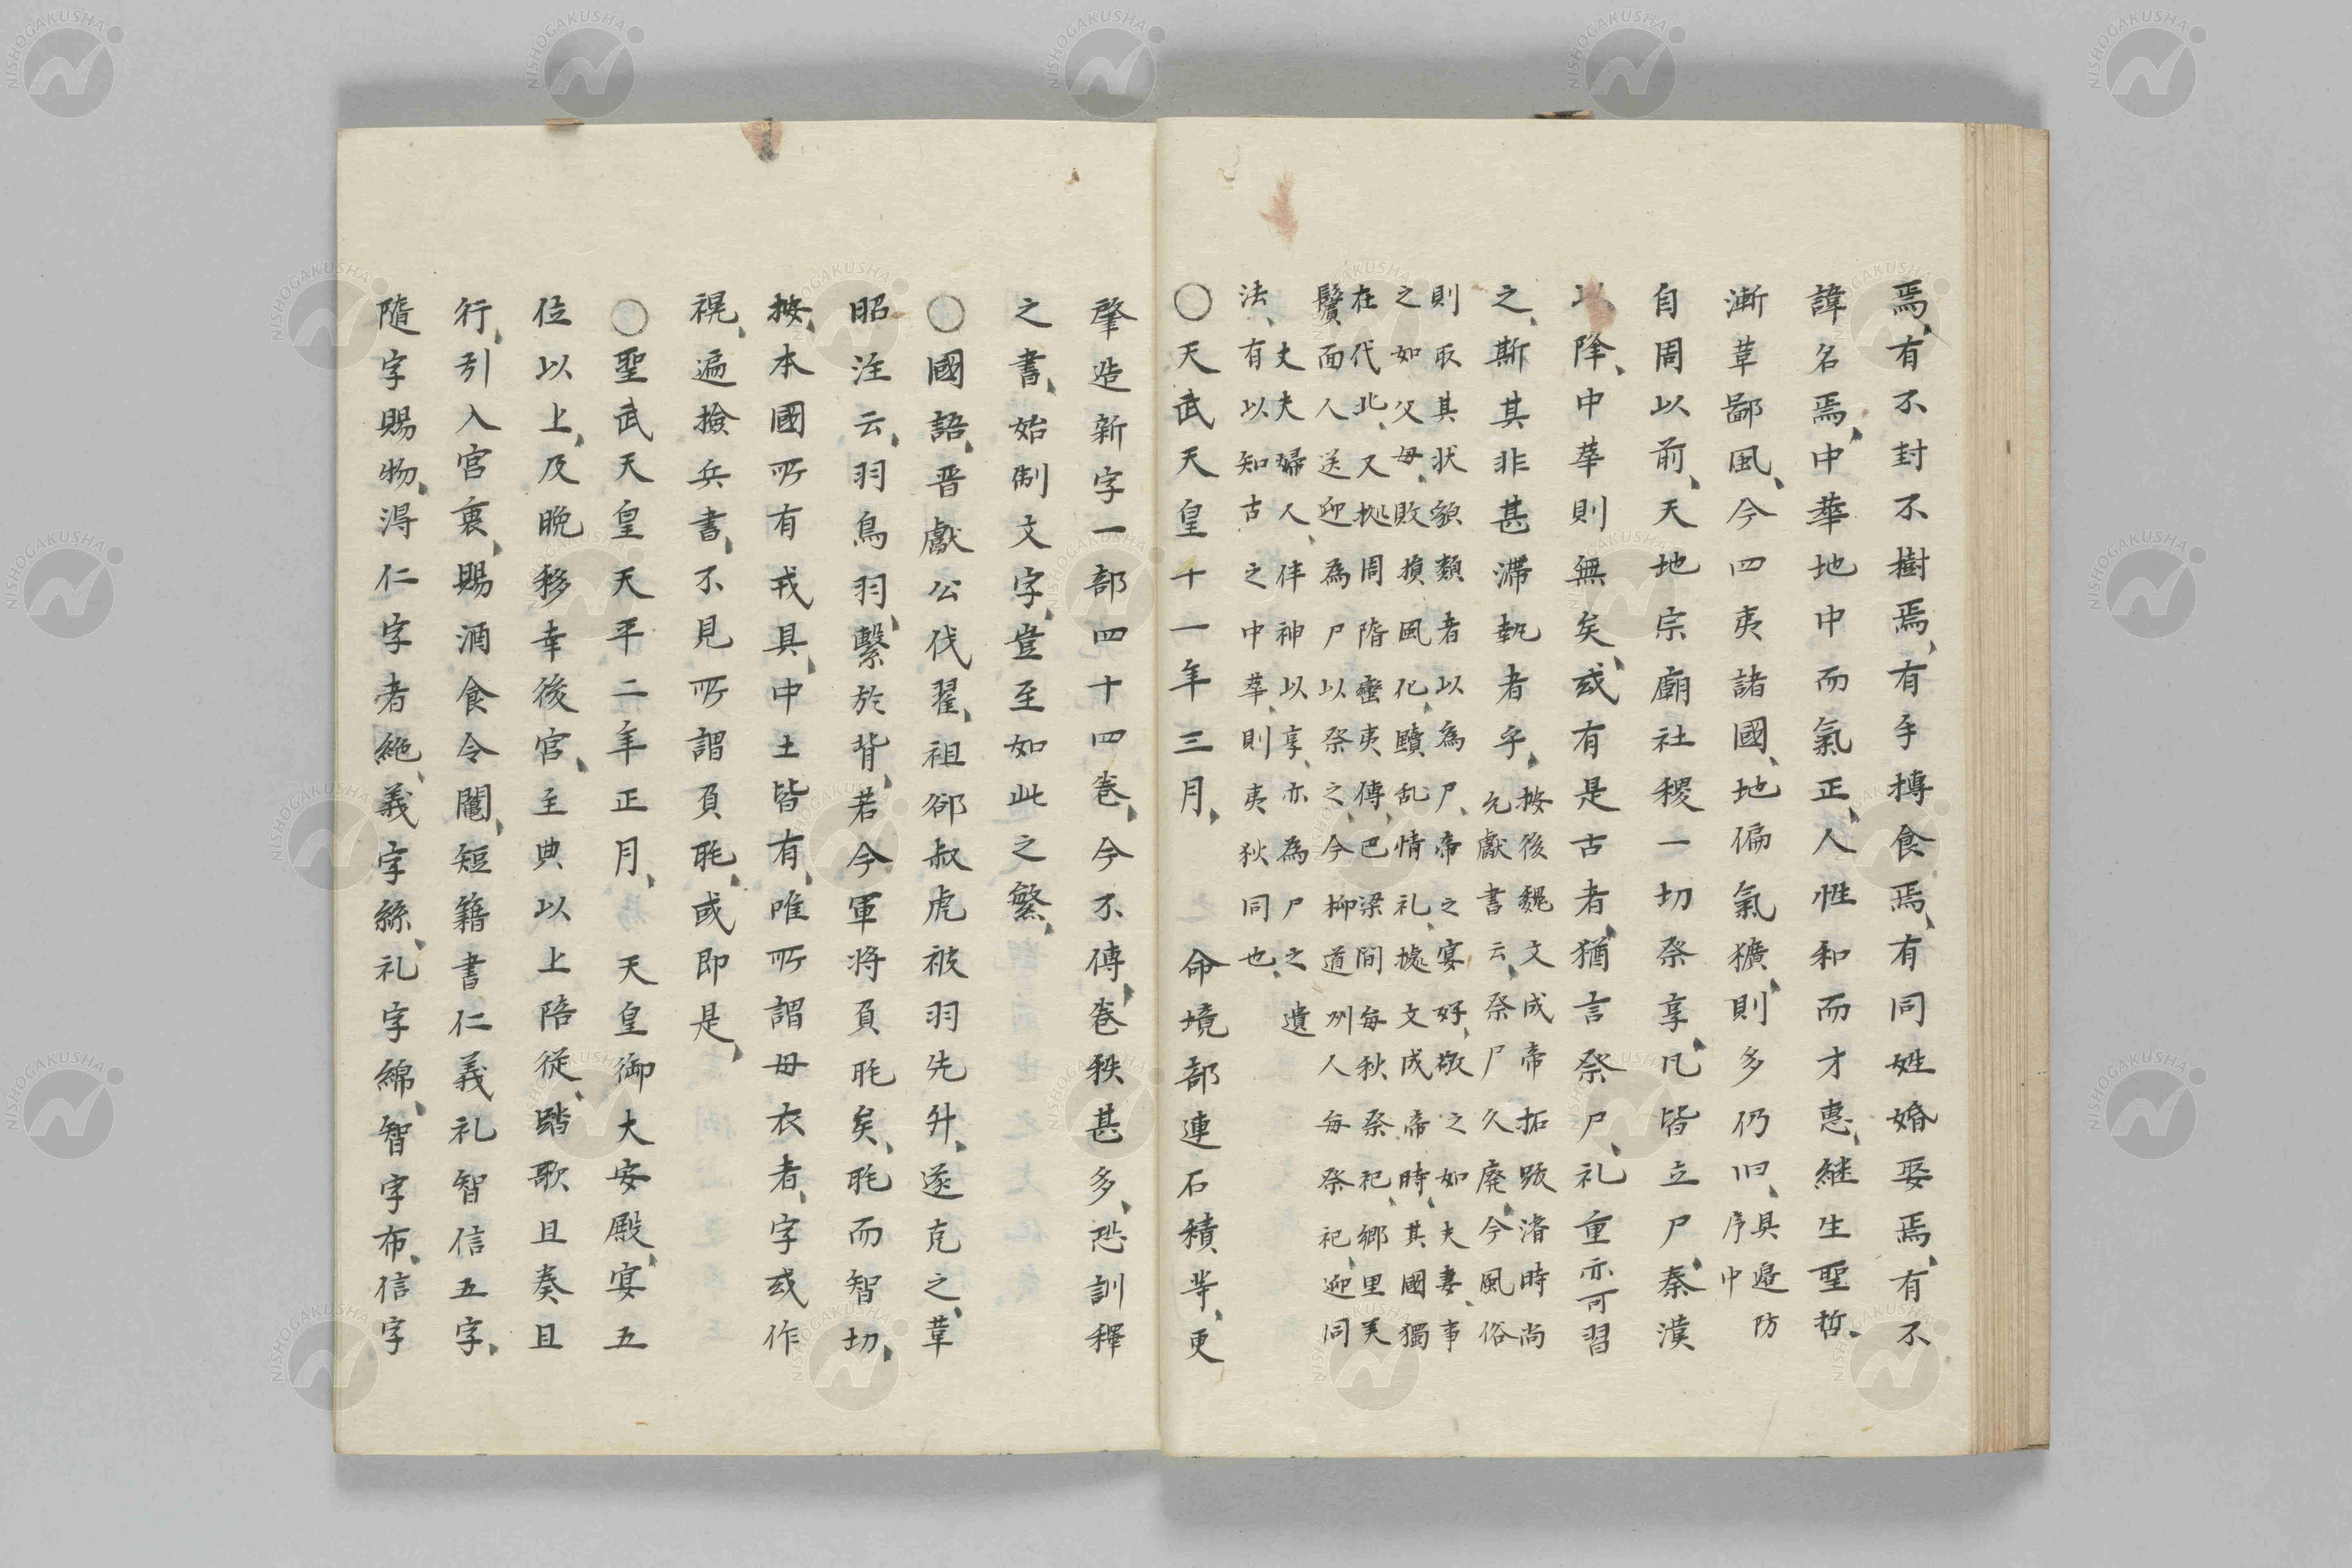 焉、有不封不樹焉、有手摶食焉、有同姓婚娶焉、有不
諱名焉、中華地中而氣正、人性和而才惠、継生聖哲、
漸革鄙風、今四夷諸國、地偏氣獷、則多仍旧、具邉防
序中
自周以前、天地宗廟社稷一切祭享、凡皆立尸、秦漢
以降、中華則無矣、或有是古者、猶言祭尸、礼重亦可習
之、斯其非甚滯執者乎、
按後魏文成帝拓跋濬時尚
允獻書云、祭尸久廃、今風俗
則取其状貌類者以為尸、帝之宴好、敬之如夫妻、事
之如父母、敗損風化、黷乱情礼、據文成帝時、其國獨
在代北、又拠周隋蠻夷傳、巴梁間每秋祭祀、郷里美
鬢面人送迎為尸以祭之、今柳道州人每祭祀、迎同
丈夫婦人、伴神以享、亦為尸之遺
法、有以知古之中華、則夷狄同也、
〇天武天皇十一年三月、命境部連石積等、更
肇造新字一部四十四卷、今不傳、卷秩甚多、恐訓釋
之書、始制文字、豈至如此之繁、
〇國語、晋獻公伐翟、祖郤叔虎被羽先升、遂克之、韋
昭注云、羽鳥羽、繫於背、若今軍将負眊矣、眊而智切、
按本國所有戎具、中土皆有、唯所謂母衣者、字或作
褁、遍撿兵書、不見所謂負眊、或即是、
〇聖武天皇天平二年正月、天皇御大安殿、宴五
位以上、及晩移幸後宮、主典以上陪従、踏歌且奏且
行、引入宮裏、賜酒食令闈、短籍書仁義礼智信五字、
隨字賜物、淂仁字者絁、義字絲、礼字綿、智字布、信字
NISHOGAKUSHA